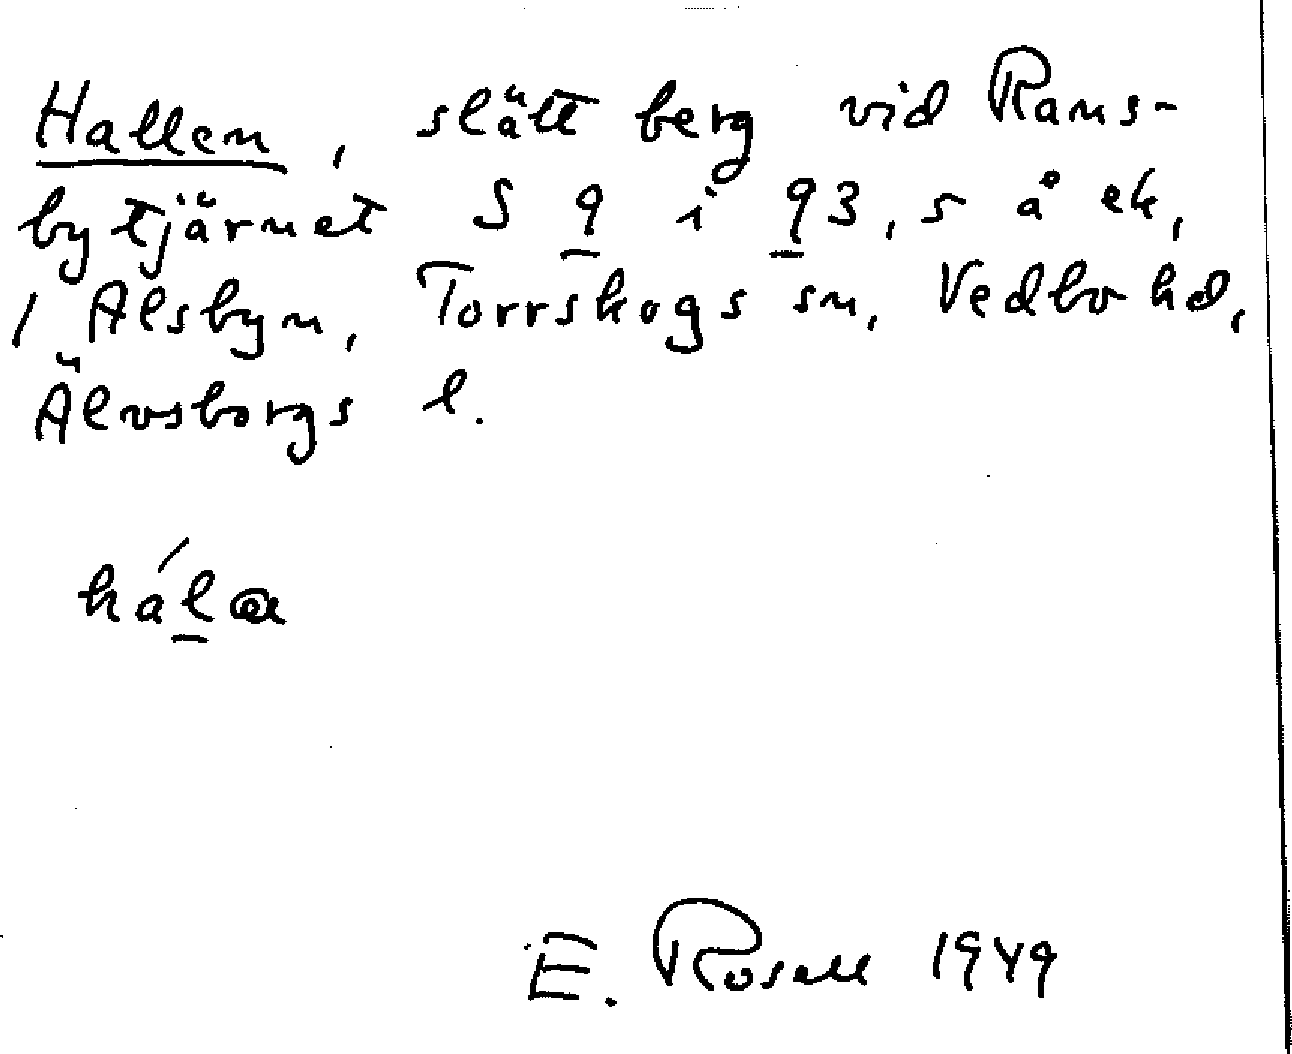 Hallen, slätt berg vid Rams-
bytjärnet S 9 i 93, s å ek,
/ Alsbyn, Torrskogs sn, Vedbo hd,
Älvsborgs l.
E. Rosell 1949